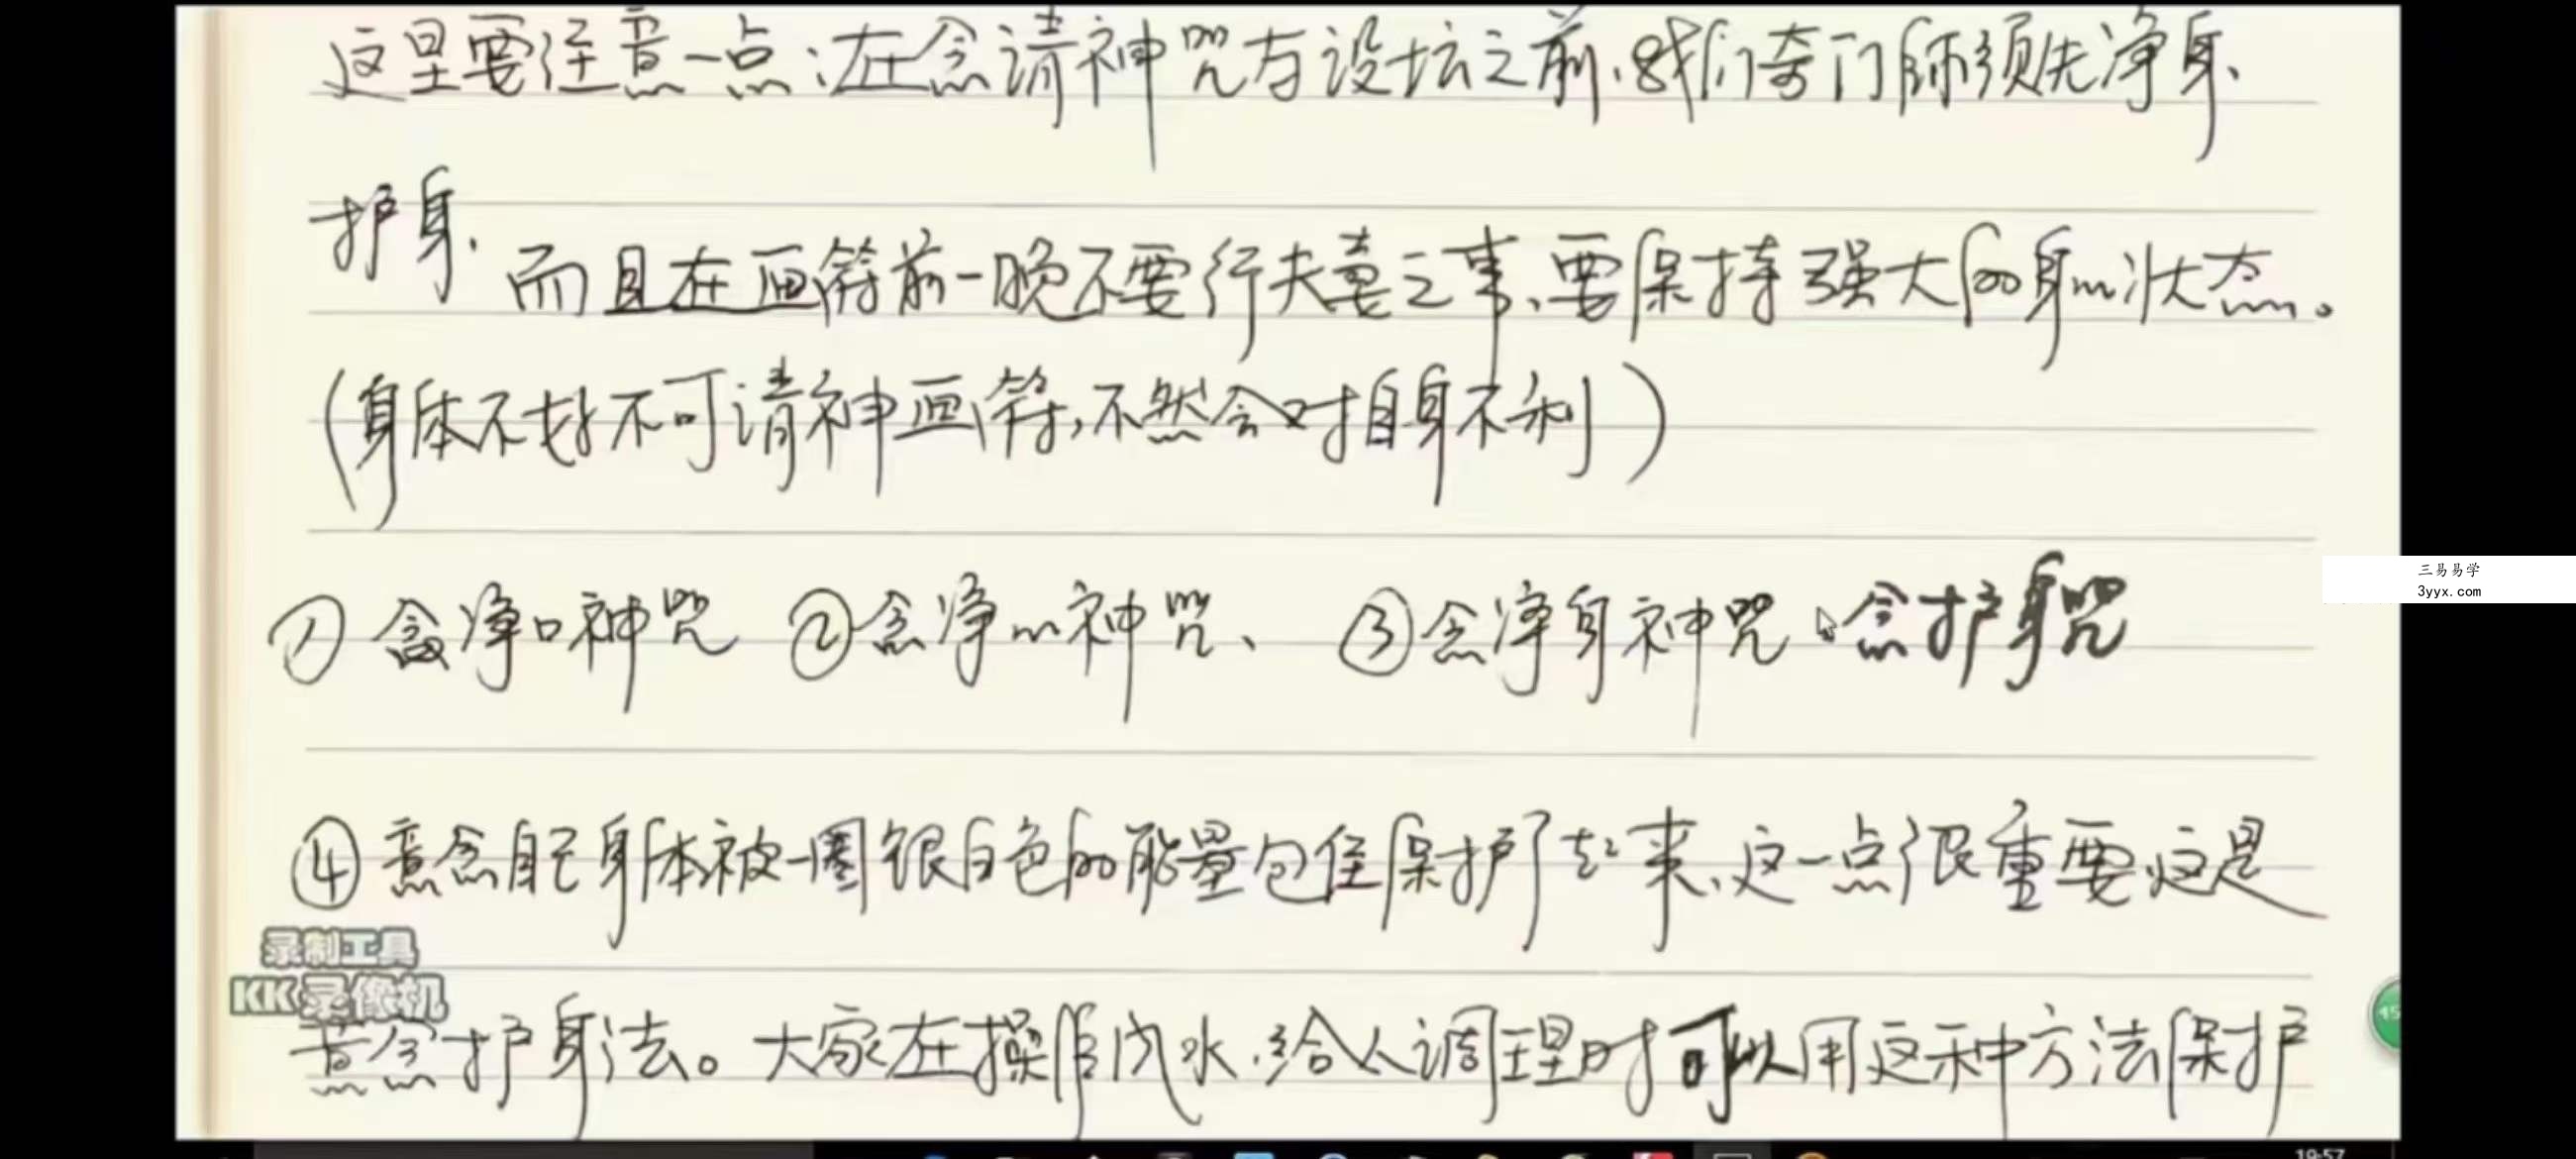 这里要注意一点：在念请神咒与设坛之前，我们奇门师须先净身、
护身，而且在画符前一晚不要行夫妻之事、要保持强大的身心状态。
(身体不好不可请神画符，不然会对自身不利)
① 念净口神咒 ②念净心神咒、 ③念净身神咒、念护身咒
三易易学
3yyx.com
④意念自己身体被一圈银白色的能量包住保护了起来、这一点很重要，这是
录制工具
KK录像机
意念护身法。大家在操作风水、给人调理时可以用这种方法保护
19:57